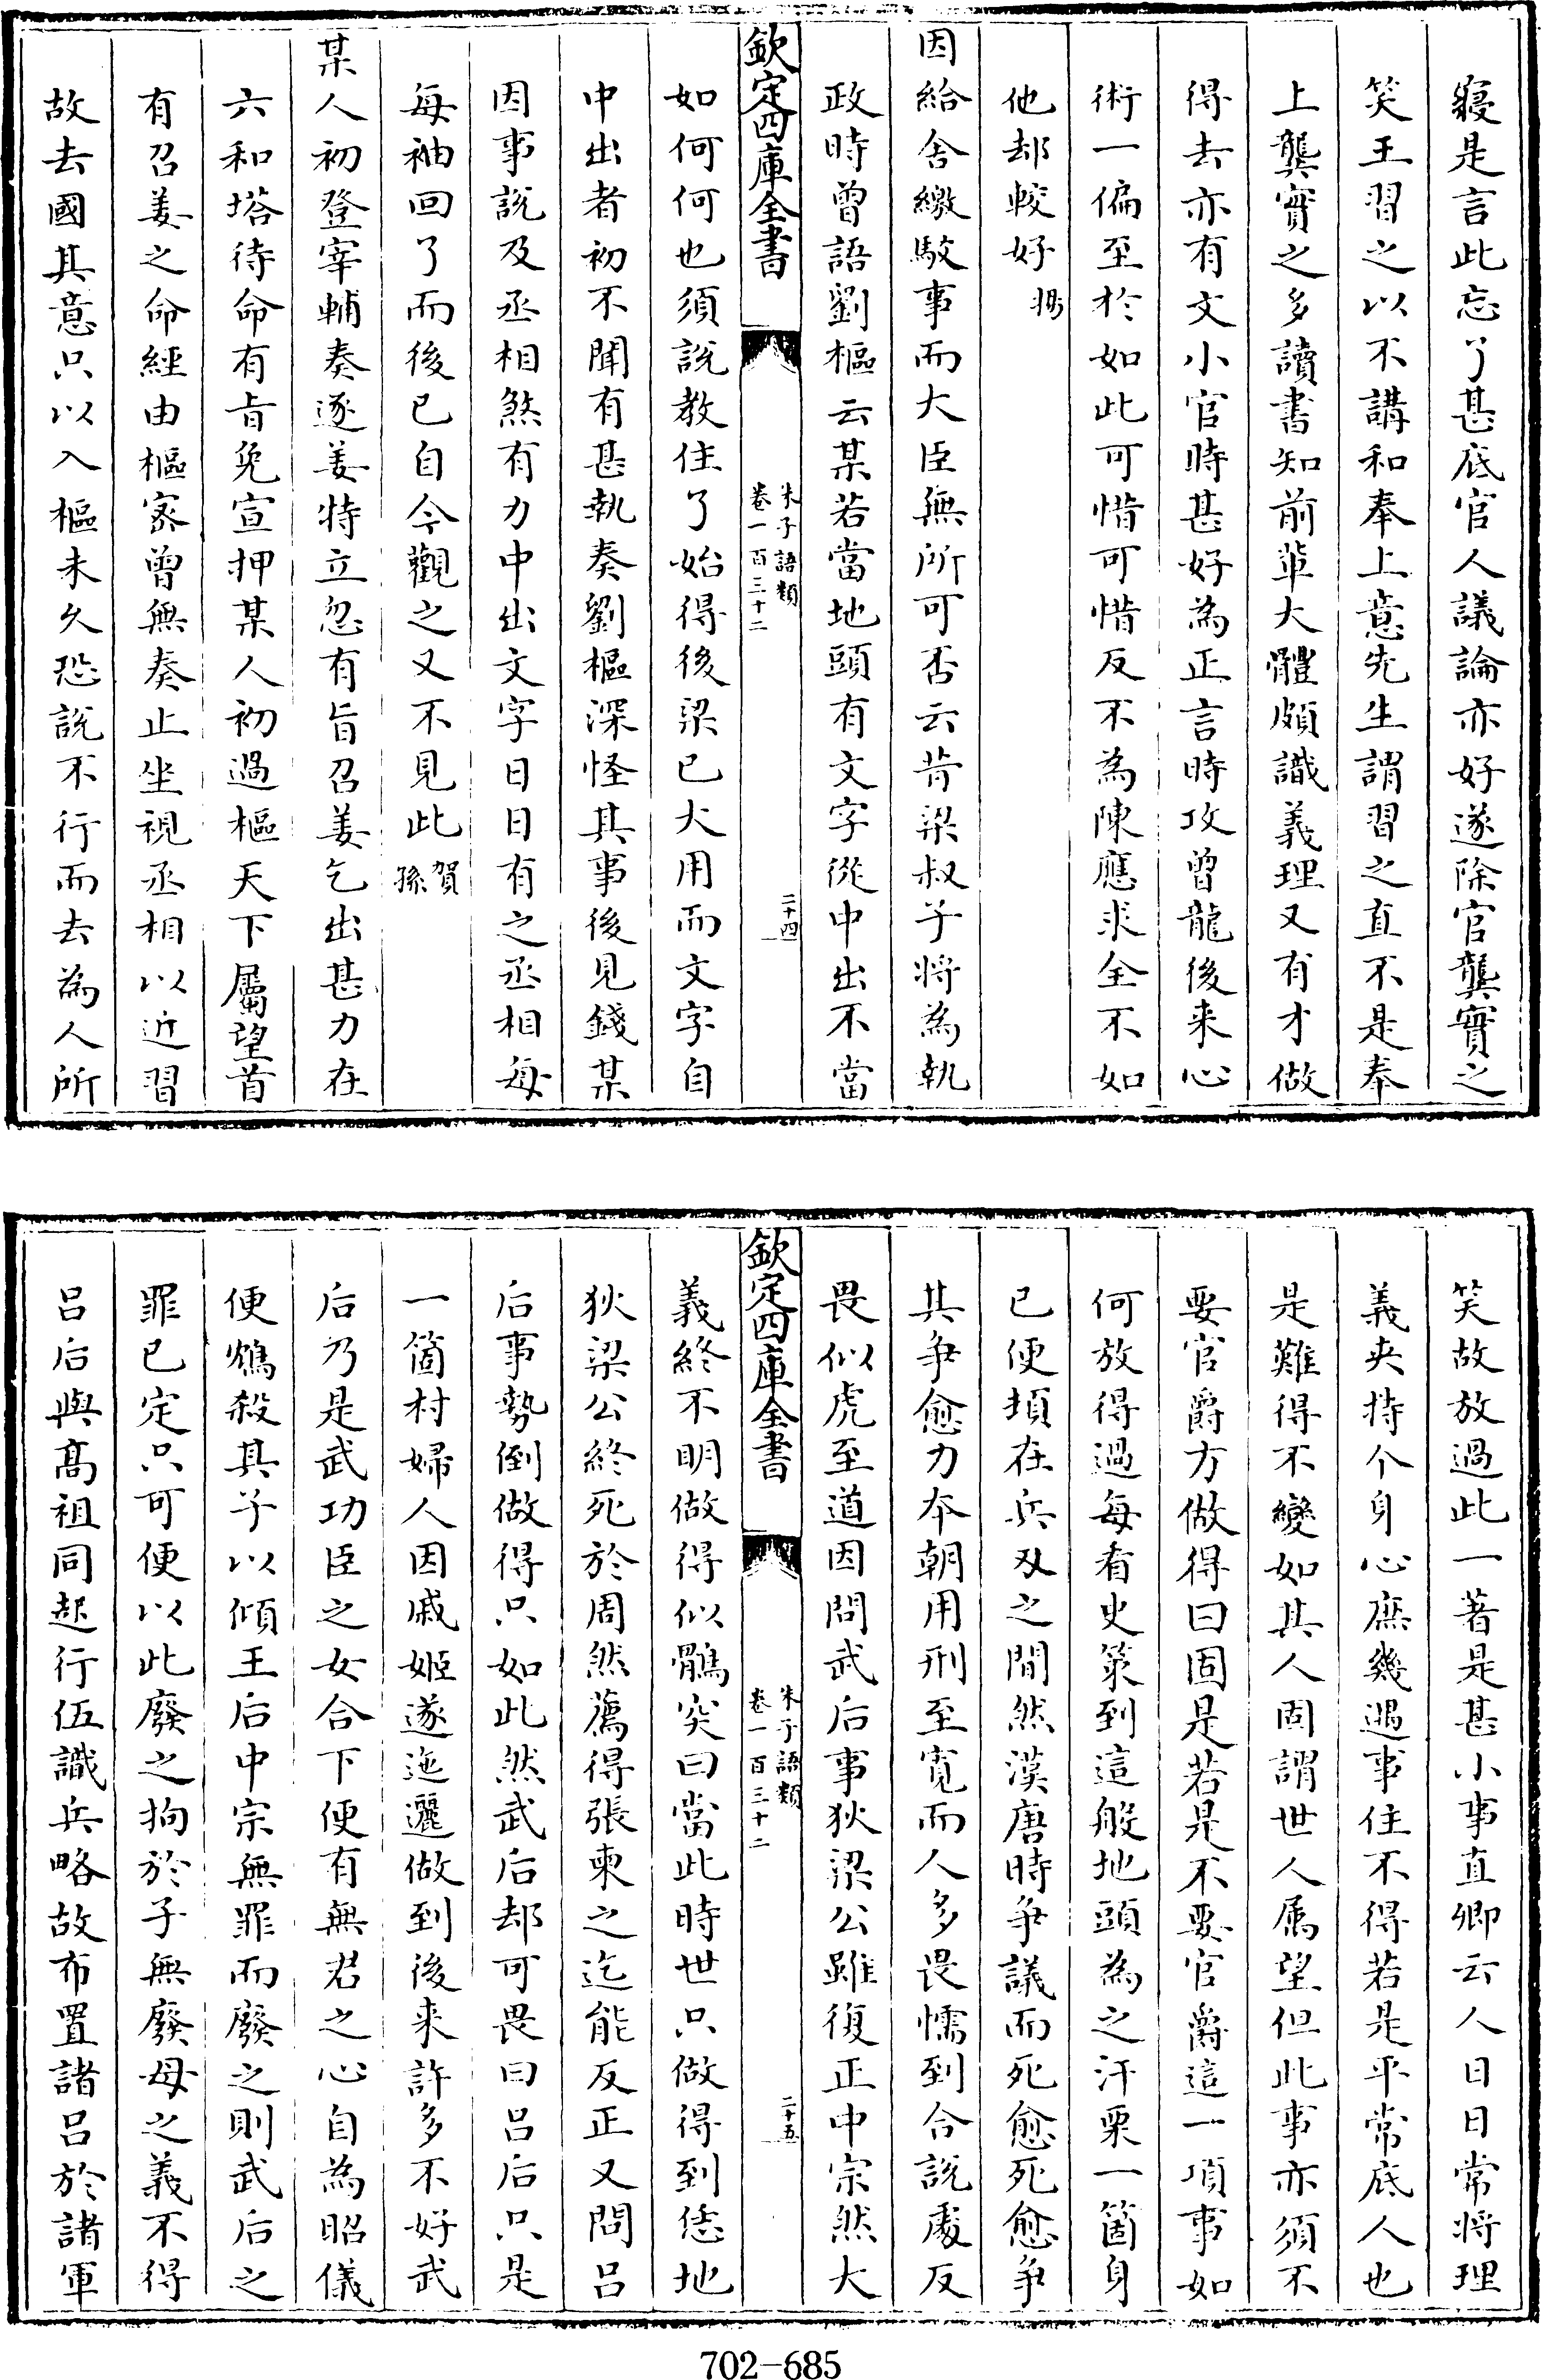 寢是言此忘了甚底官人議論亦好遂除官龔實之
笑王習之以不講和奉上意先生謂習之直不是奉
上龔實之多讀書知前輩大體頗識義理又有才做
得去亦有文小官時甚好為正言時攻曾龍後来心
術一偏至於如此可惜可惜反不為陳應求全不如
他却較好
因給舎繳駮事而大臣無所可否云昔梁叔子将為執
政時曾語劉樞云某若當地頭有文字從中出不當
欽定四庫全書
朱子語類
卷一百三十二
二十四
如何何也須說教住了始得後梁已大用而文字自
中出者初不聞有甚執奏劉樞深怪其事後見錢某
因事説及丞相煞有力中出文字日日有之丞相每
每袖回了而後已自今觀之又不見此賀孫
某人初登宰輔奏逐姜特立忽有旨召姜乞出甚力在
六和塔待命有旨免宣押某人初過樞天下屬望首
有召姜之命經由樞宻曾無奏止坐視丞相以近習
故去國其意只以入樞未久恐說不行而去為人所
笑故放過此一著是甚小事直卿云人日日常将理
義夹持个身心庶幾遇事住不得若是平常底人也
是難得不變如其人固謂世人属望但此事亦須不
要官爵方做得曰固是若是不要官爵這一項事如
何放得過每看史策到這般地頭為之汗栗一箇身
已便頓在兵刄之間然漢唐時爭議而死愈死愈爭
其爭愈力本朝用刑至寛而人多畏懦到合說處反
畏似虎至道因問武后事狄梁公雖復正中宗然大
欽定四庫全書
朱子語類
卷一百三十二
二十五
義終不明做得似鶻突曰當此時世只做得到恁地
狄梁公終死於周然薦得張柬之迄能反正又問吕
后事勢倒做得只如此然武后却可畏曰吕后只是
一箇村婦人因戚姬遂迤邐做到後来許多不好武
后乃是武功臣之女合下便有無君之心自為昭儀
便鴆殺其子以傾王后中宗無罪而廢之則武后之
罪已定只可便以此廢之拘於子無廢母之義不得
吕后與髙祖同起行伍識兵略故布置諸吕於諸軍
702-685